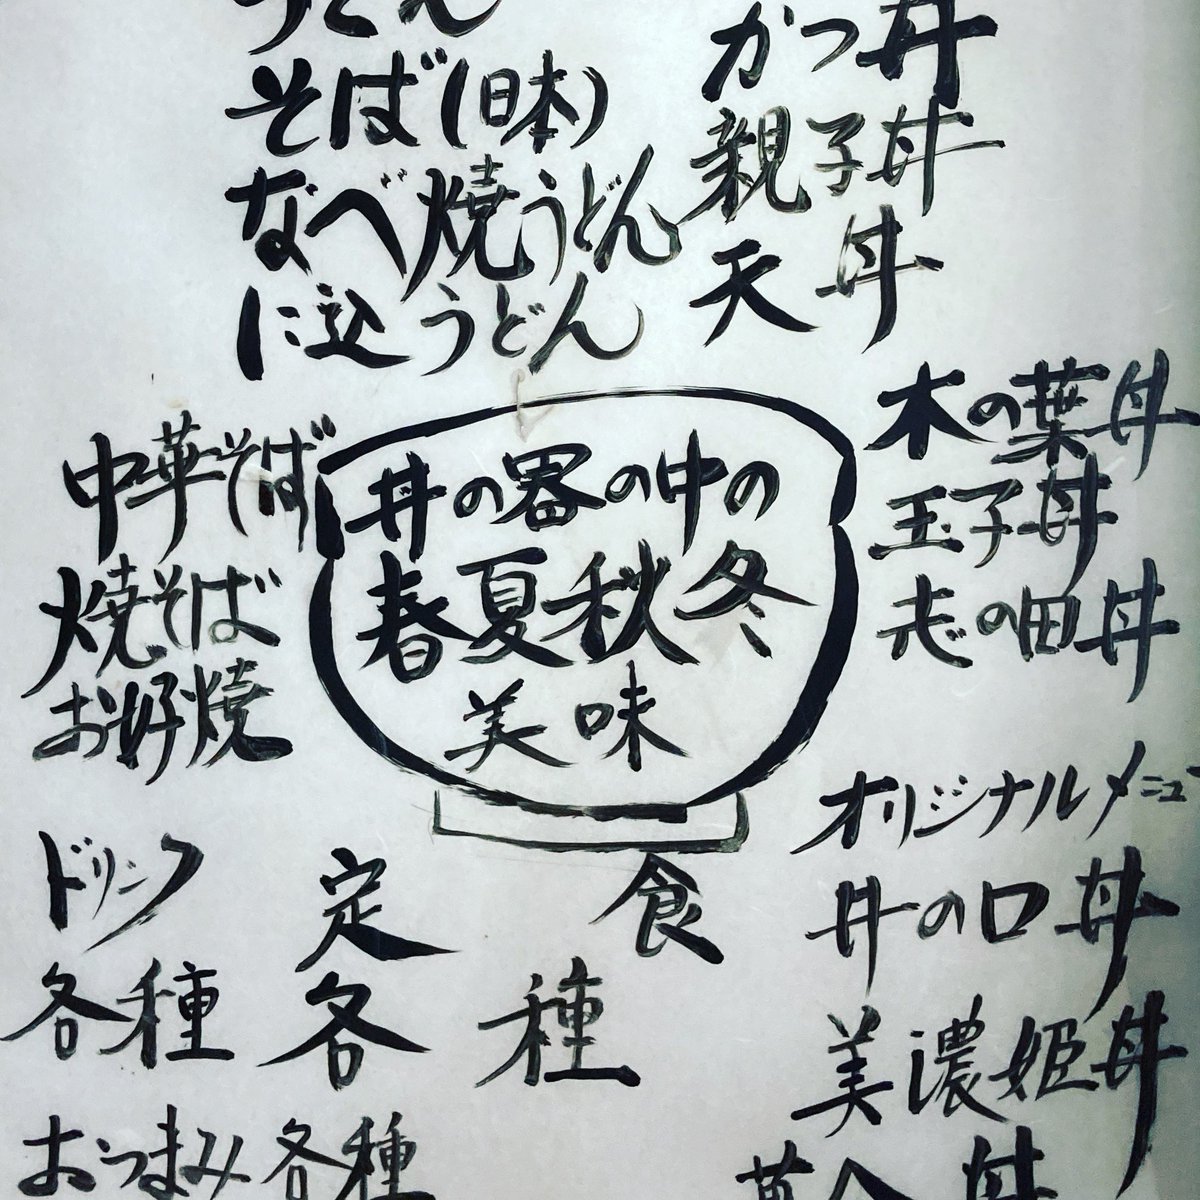 うどん
そば(日本)
なべ焼うどん
に込うどん
かつ丼
親子丼
天丼
木の葉丼
玉子丼
志の田丼
中華そば
焼そば
お好焼
丼の器の中の
春夏秋冬
美味
オリジナルメニュー
井の口丼
美濃姫丼
ドリンク
各種
定食
各種
おつまみ各種